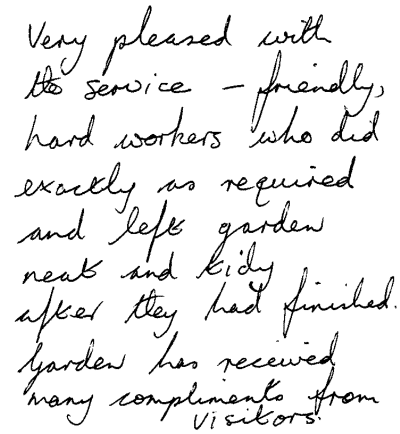 Very pleased with
the service – friendly,
hard workers who did
exactly as required
and left garden
neat and tidy
after they had finished.
Garden has received
many compliments from
visitors.